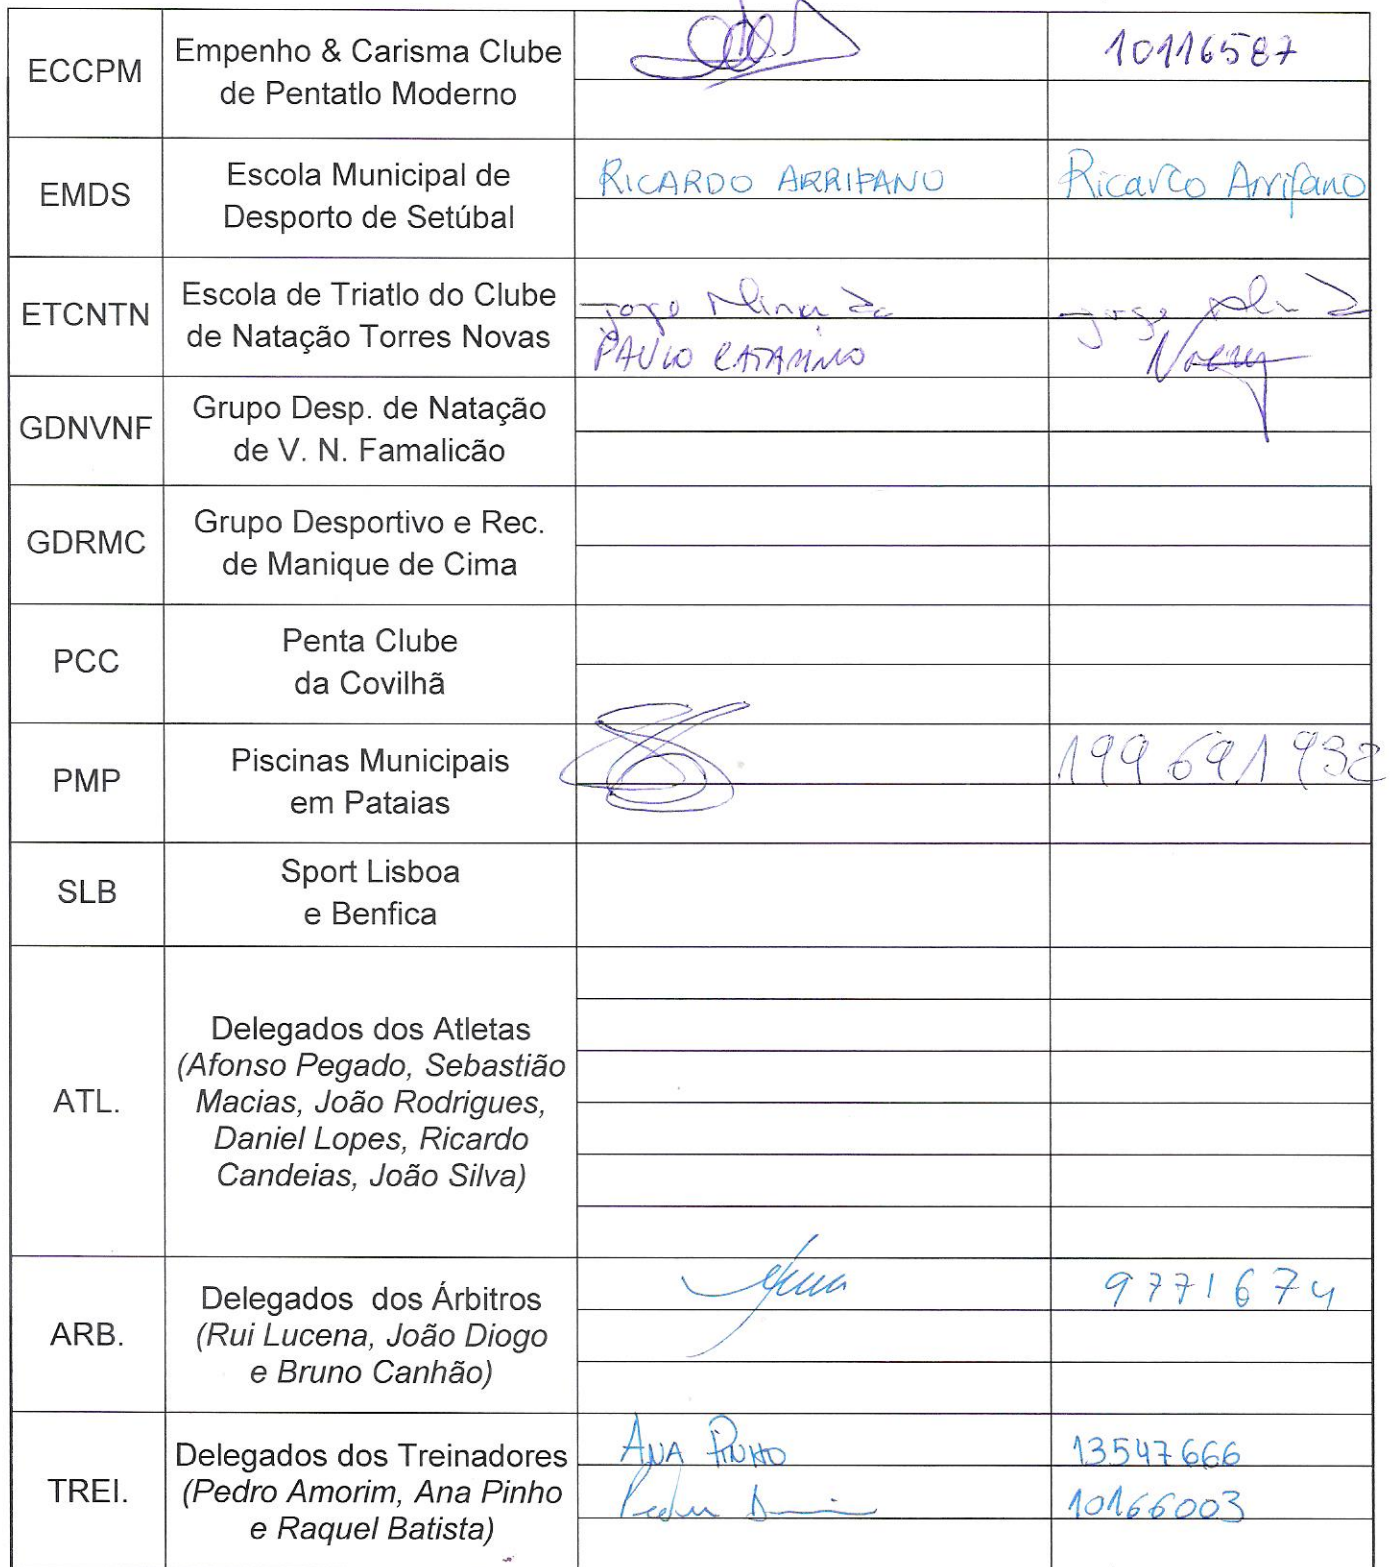 ECCPM
Empenho & Carisma Clube
de Pentatlo Moderno
10116587
EMDS
Escola Municipal de
Desporto de Setúbal
RICARDO ARRIFANO
Ricardo Arrifano
ETCNTN
Escola de Triatlo do Clube
de Natação Torres Novas
Jorge Miranda
PAULO CATARINO
Jorge
GDNVNF
Grupo Desp. de Natação
de V. N. Famalicão
GDRMC
Grupo Desportivo e Rec.
de Manique de Cima
PCC
Penta Clube
da Covilhã
PMP
Piscinas Municipais
em Pataias
199 691 932
SLB
Sport Lisboa
e Benfica
ATL.
Delegados dos Atletas
(Afonso Pegado, Sebastião
Macias, João Rodrigues,
Daniel Lopes, Ricardo
Candeias, João Silva)
ARB.
Delegados dos Árbitros
(Rui Lucena, João Diogo
e Bruno Canhão)
9771674
TREI.
Delegados dos Treinadores
(Pedro Amorim, Ana Pinho
e Raquel Batista)
ANA PINHO
13547666
Pedro Amorim
10166003